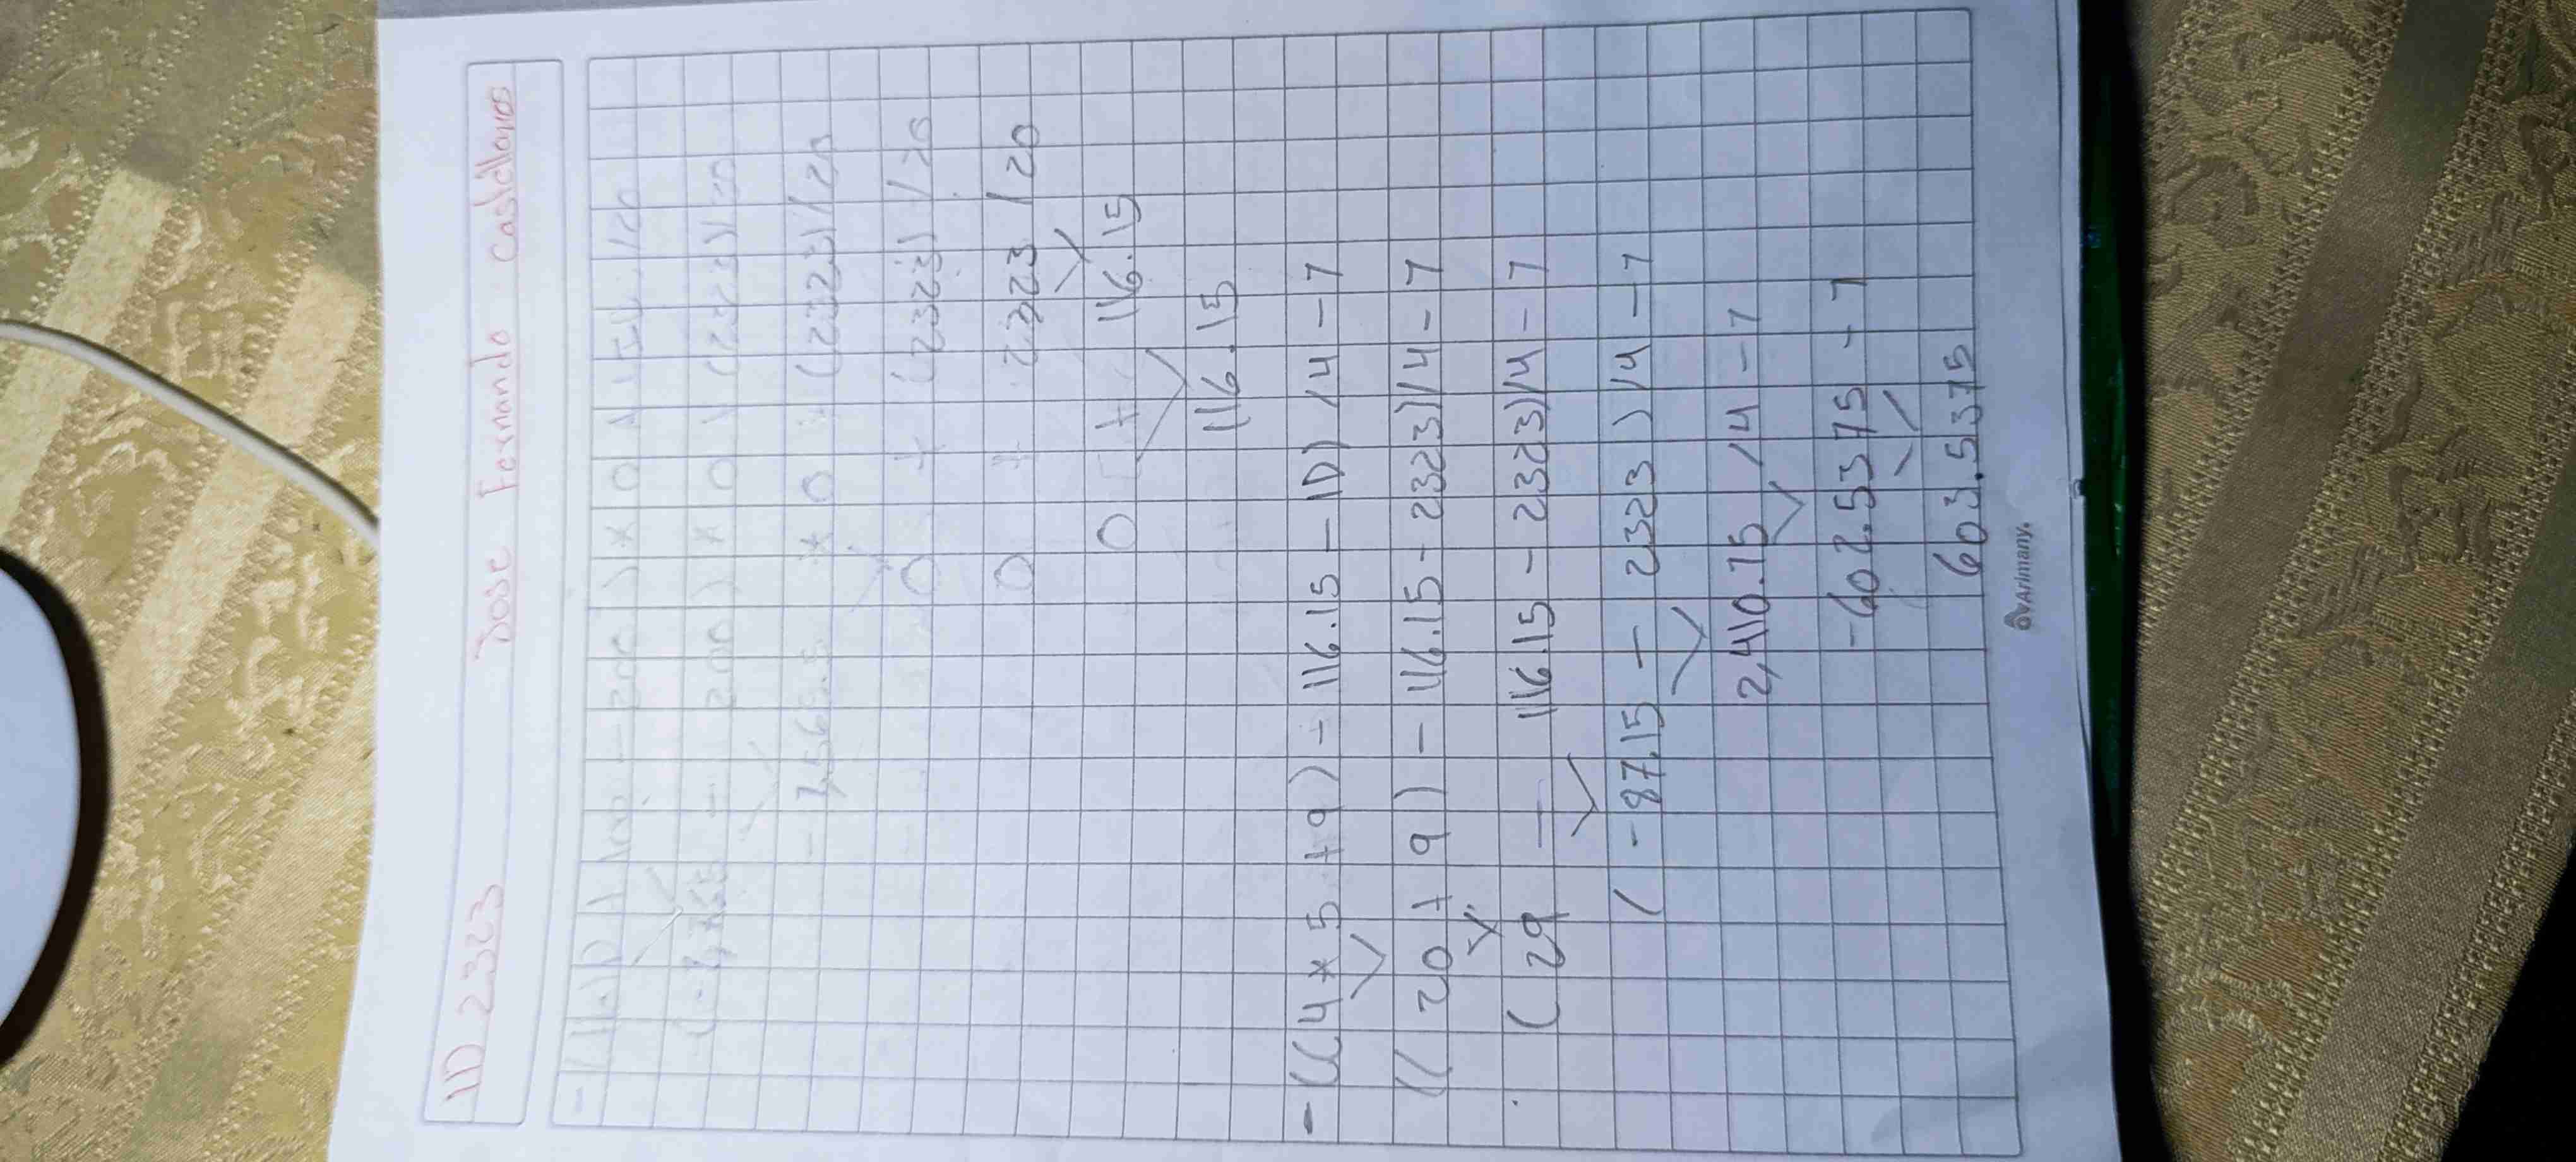 ID 2323 Jose Fernando Castellanos
200 ) * 0
200 ) * 0 (2323)/20
* 0 + (2323)/20
0 + (2323) / 20
0 + 2323 / 20
0 + 116.15
116.15
-((4 * 5 + 9) - 116.15 - ID) / 4 - 7
(( 20 + 9 ) - 116.15 - 2323)/4 - 7
( 29 - 116.15 - 2323)/4 - 7
( - 87.15 - 2323 ) /4 - 7
2,410.15 /4 - 7
-602.5375 - 7
603.5375
Arimany.